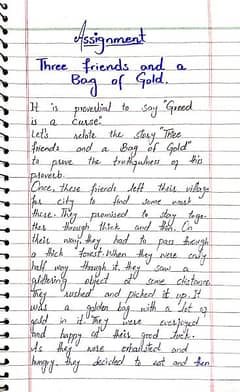 Assignment
Three friends and a
Bag of Gold.
It is proverbial to say "Greed
is a curse".
Let's relate the story "Three
friends and a Bag of Gold"
to prove the truthfulness of this
proverb.
Once, three friends left their village
for city to find some work
there. They promised to stay toge-
ther through thick and thin. On
their way, they had to pass through
a thick forest. When they were only
half way through it, they saw a
glittering object at some distance.
They rushed and picked it up. It
was a golden bag with a lot of
gold in it. They were overjoyed
and happy at their good luck.
As they were exhausted and
hungry, they decided to eat and then